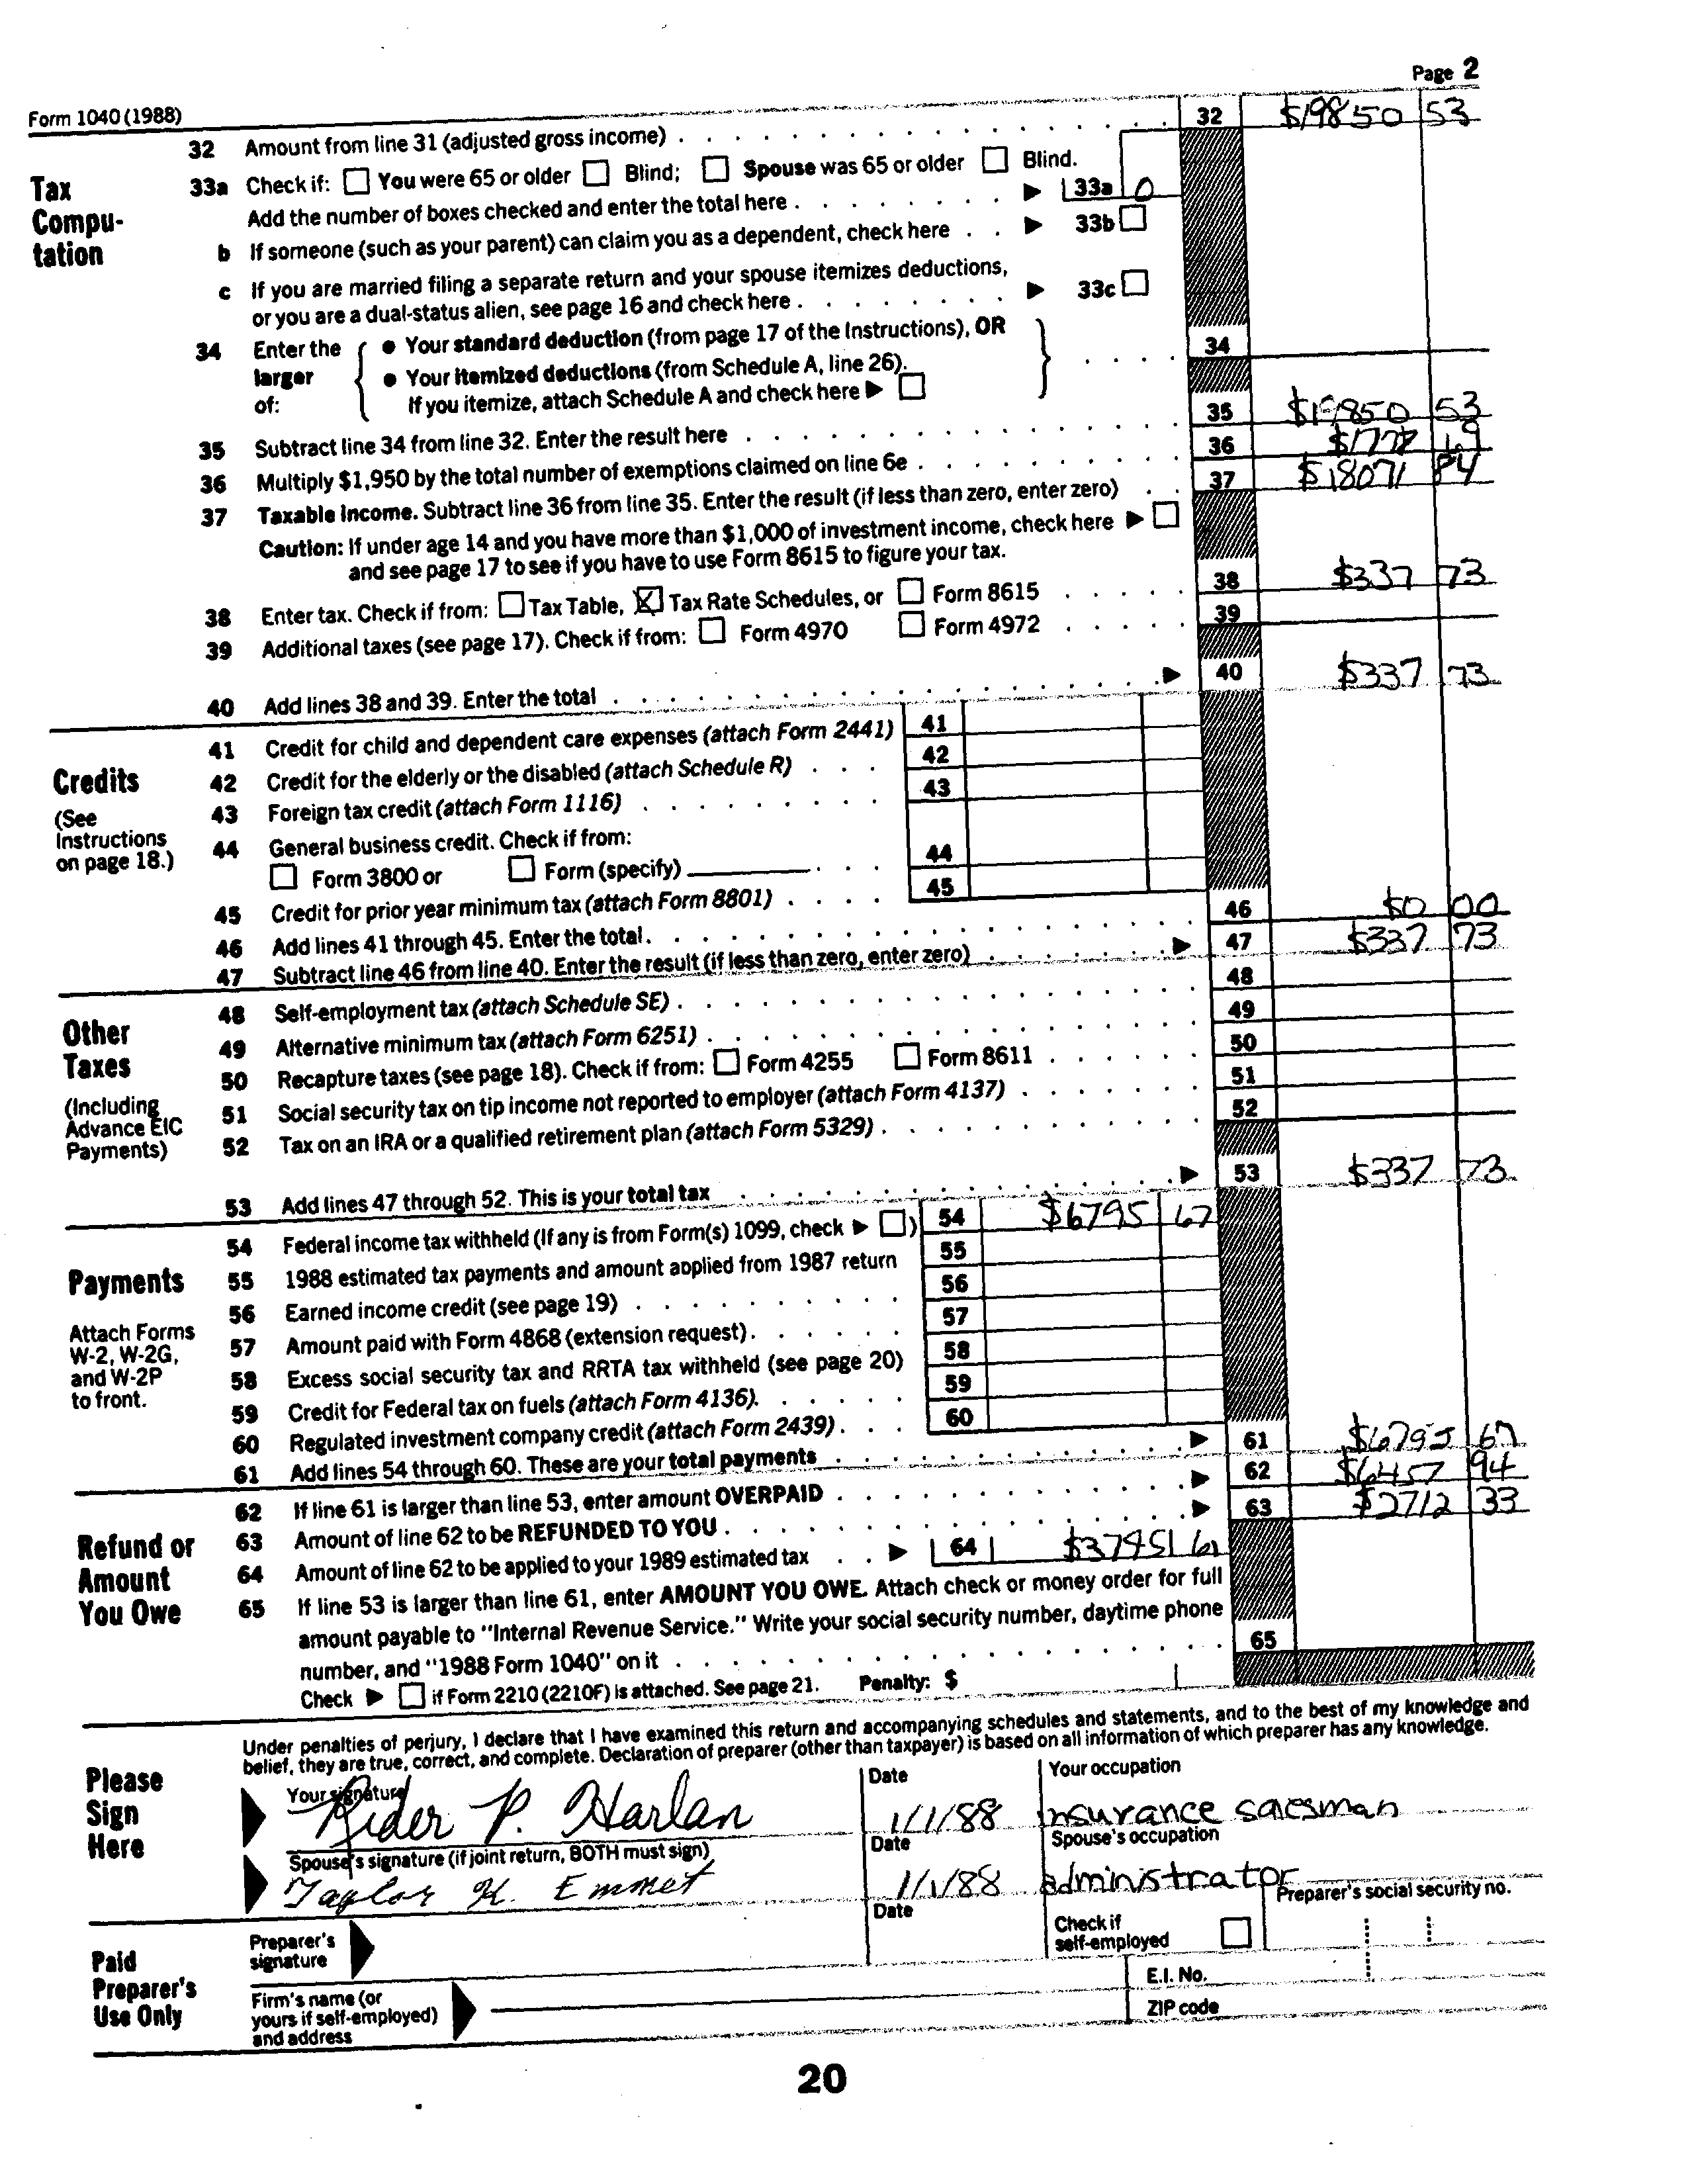 Page 2
Form 1040 (1988)
32 Amount from line 31 (adjusted gross income) 32 $19850 53
Tax Compu- tation
33a Check if: You were 65 or older Blind; Spouse was 65 or older Blind.
Add the number of boxes checked and enter the total here 33a 0
b If someone (such as your parent) can claim you as a dependent, check here 33b
c If you are married filing a separate return and your spouse itemizes deductions,
or you are a dual-status alien, see page 16 and check here 33c
34 Enter the larger of: { • Your standard deduction (from page 17 of the Instructions), OR } 34
• Your itemized deductions (from Schedule A, line 26).
If you itemize, attach Schedule A and check here
35 Subtract line 34 from line 32. Enter the result here 35 $19850 53
36 Multiply $1,950 by the total number of exemptions claimed on line 6e 36 $1778 69
37 Taxable income. Subtract line 36 from line 35. Enter the result (if less than zero, enter zero) 37 $18071 84
Caution: If under age 14 and you have more than $1,000 of investment income, check here
and see page 17 to see if you have to use Form 8615 to figure your tax.
38 Enter tax. Check if from: Tax Table, X Tax Rate Schedules, or Form 8615 38 $337 73
39 Additional taxes (see page 17). Check if from: Form 4970 Form 4972 39
40 Add lines 38 and 39. Enter the total 40 $337 73
Credits
(See Instructions on page 18.)
41 Credit for child and dependent care expenses (attach Form 2441) 41
42 Credit for the elderly or the disabled (attach Schedule R) 42
43 Foreign tax credit (attach Form 1116) 43
44 General business credit. Check if from:
Form 3800 or Form (specify) 44
45 Credit for prior year minimum tax (attach Form 8801) 45
46 Add lines 41 through 45. Enter the total. 46 $0 00
47 Subtract line 46 from line 40. Enter the result (if less than zero, enter zero) 47 $337 73
Other Taxes
(Including Advance EIC Payments)
48 Self-employment tax (attach Schedule SE) 48
49 Alternative minimum tax (attach Form 6251) 49
50 Recapture taxes (see page 18). Check if from: Form 4255 Form 8611 50
51 Social security tax on tip income not reported to employer (attach Form 4137) 51
52 Tax on an IRA or a qualified retirement plan (attach Form 5329) 52
53 Add lines 47 through 52. This is your total tax 53 $337 73
Payments
Attach Forms W-2, W-2G, and W-2P to front.
54 Federal income tax withheld (If any is from Form(s) 1099, check ) 54 $6795 67
55 1988 estimated tax payments and amount applied from 1987 return 55
56 Earned income credit (see page 19) 56
57 Amount paid with Form 4868 (extension request). 57
58 Excess social security tax and RRTA tax withheld (see page 20) 58
59 Credit for Federal tax on fuels (attach Form 4136). 59
60 Regulated investment company credit (attach Form 2439) 60
61 Add lines 54 through 60. These are your total payments 61 $6795 67
Refund or Amount You Owe
62 If line 61 is larger than line 53, enter amount OVERPAID 62 $6457 94
63 Amount of line 62 to be REFUNDED TO YOU 63 $2712 33
64 Amount of line 62 to be applied to your 1989 estimated tax 64 $3745 61
65 If line 53 is larger than line 61, enter AMOUNT YOU OWE. Attach check or money order for full
amount payable to "Internal Revenue Service." Write your social security number, daytime phone
number, and "1988 Form 1040" on it 65
Check if Form 2210 (2210F) is attached. See page 21. Penalty: $
Please Sign Here
Under penalties of perjury, I declare that I have examined this return and accompanying schedules and statements, and to the best of my knowledge and
belief, they are true, correct, and complete. Declaration of preparer (other than taxpayer) is based on all information of which preparer has any knowledge.
Your signature Date Your occupation
Rider P. Harlan 1/1/88 insurance salesman
Spouse's signature (if joint return, BOTH must sign) Date Spouse's occupation
Taylor K. Emmet 1/1/88 administrator
Paid Preparer's Use Only
Preparer's signature Date Check if self-employed Preparer's social security no.
Firm's name (or yours if self-employed) and address E.I. No.
ZIP code
20